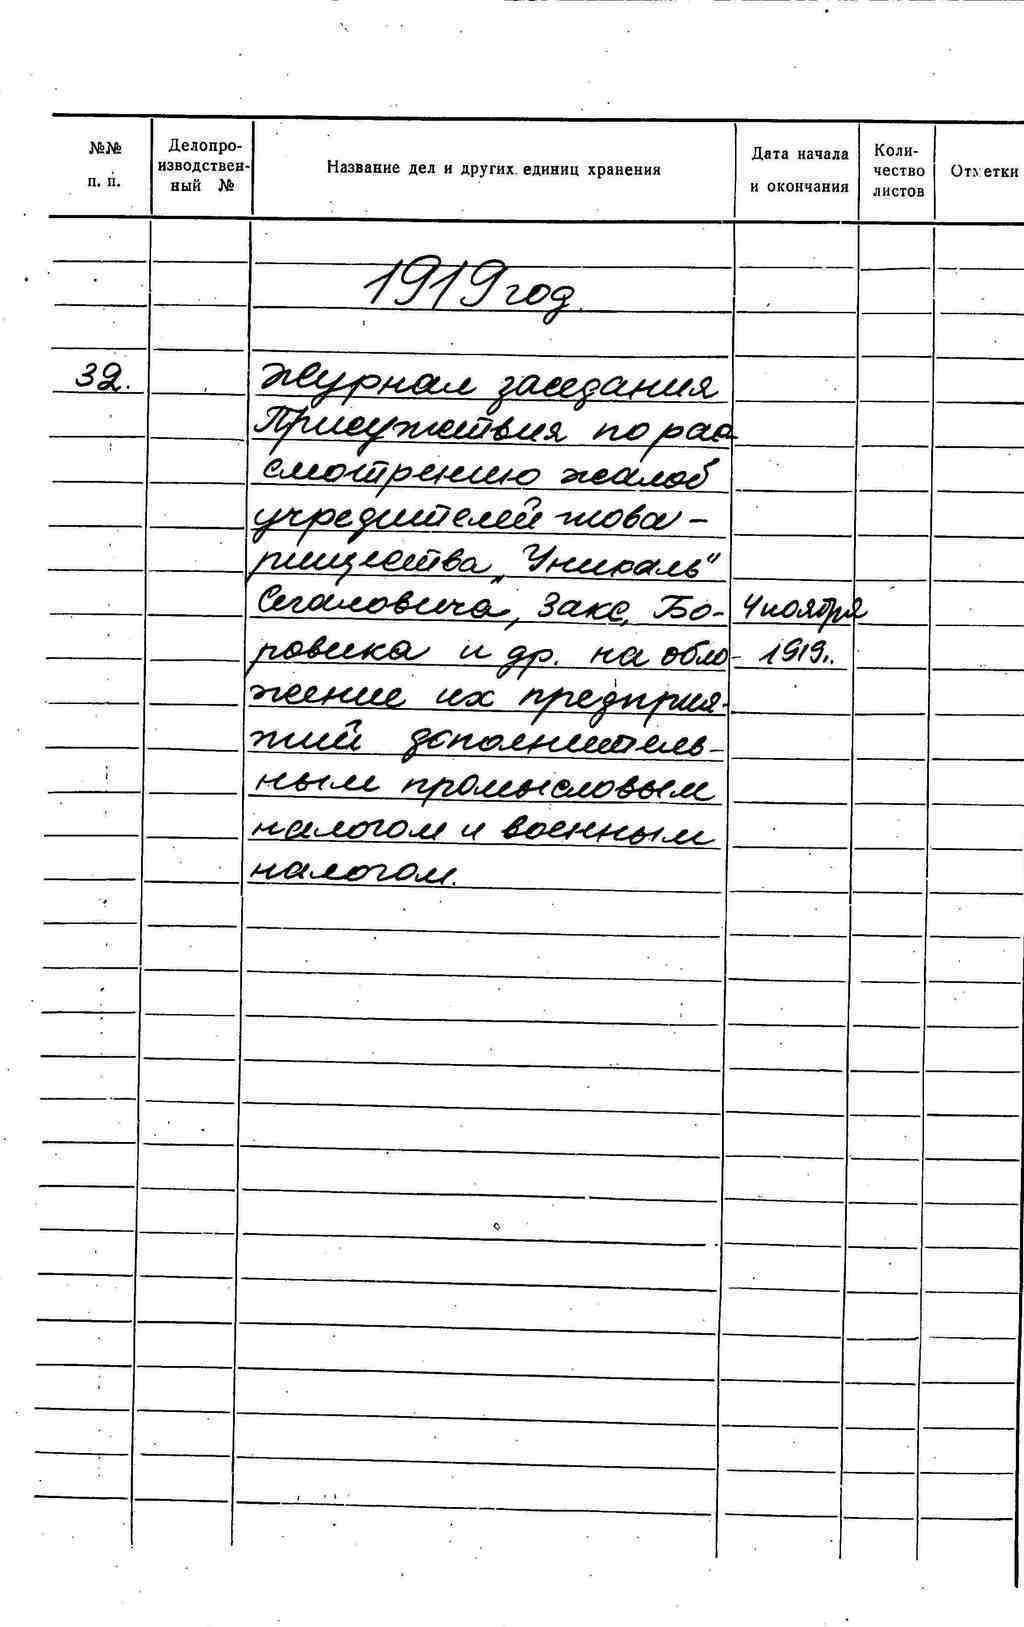 №№ п. п.
Делопро-
изводствен-
ный №
Название дел и других единиц хранения
Дата начала
и окончания
Коли-
чество
листов
Отметки
1919 год.
32.
Журнал заседания
Присутствия по рас
смотрению жалоб
учредителей това-
рищества „Уникаль"
Сегаловича, Закс, Бо-
ровика и др. на обло-
жение их предприя-
тий дополнитель-
ным промысловым
налогом и военным
налогом.
4 ноября
1919г.